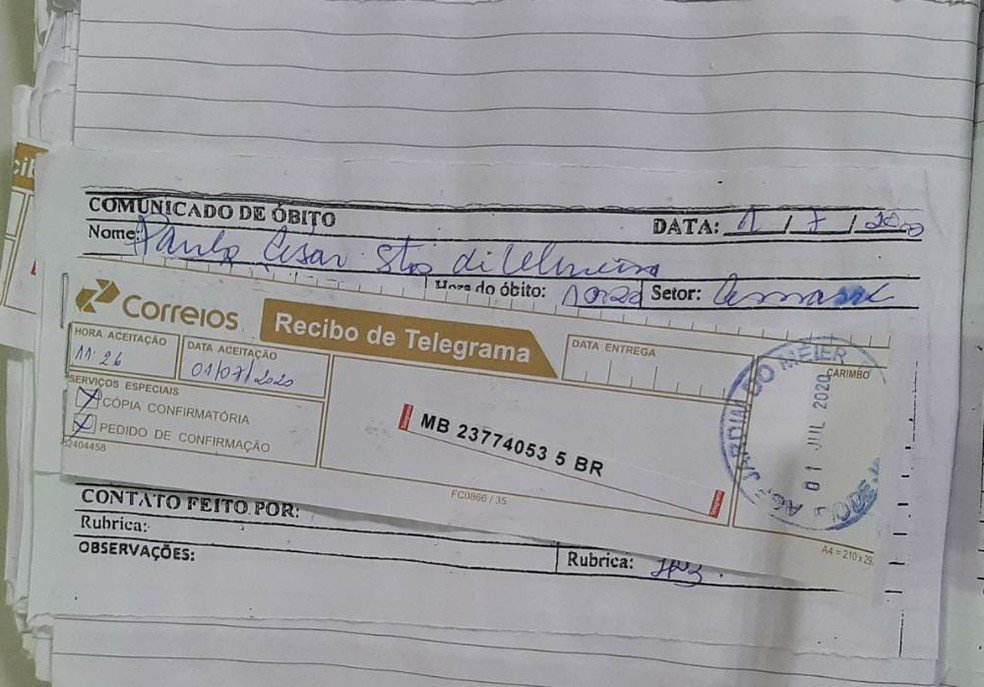 COMUNICADO DE ÓBITO DATA: 1 / 7 / 2020
Nome: Paulo Cesar Stos de
Hora do óbito: 10:20 Setor:
Correios Recibo de Telegrama
HORA ACEITAÇÃO 11:26
DATA ACEITAÇÃO 01/07/2020
DATA ENTREGA
CARIMBO
AGF JARDIM DO MEIER
01 JUL 2020
SERVIÇOS ESPECIAIS
X CÓPIA CONFIRMATÓRIA
X PEDIDO DE CONFIRMAÇÃO
52404458
MB 23774053 5 BR
FC0866 / 35
CONTATO FEITO POR:
Rubrica:
OBSERVAÇÕES:
Rubrica: